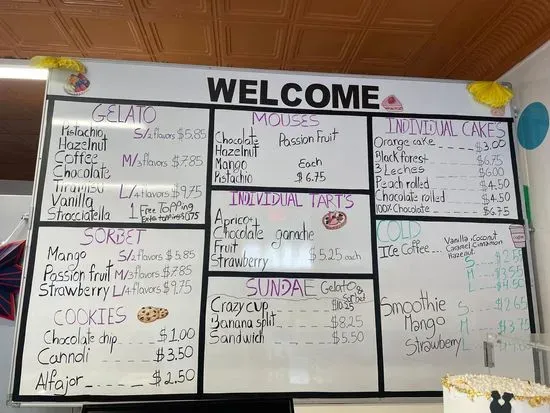 WELCOME
GELATO
Pistachio S/2 flavors $5.85
Hazelnut
Coffee M/3 flavors $7.85
Chocolate
Tiramisu L/4 flavors $9.75
Vanilla 1 Free Topping
Stracciatella Extra toppings 0.75
SORBET
Mango S/2 flavors $5.85
Passion fruit M/3 flavors $7.85
Strawberry L/4 flavors $9.75
COOKIES
Chocolate chip $1.00
Cannoli $3.50
Alfajor $2.50
MOUSES
Chocolate Passion Fruit
Hazelnut
Mango Each
Pistachio $6.75
INDIVIDUAL TART'S
Apricot
Chocolate ganache
Fruit
Strawberry $5.25 each
SUNDAE Gelato & Sorbet
Crazy cup $10.25
Banana split $8.25
Sandwich $5.50
INDIVIDUAL CAKES
Orange cake $3.00
Black forest $6.75
3 Leches $6.00
Peach rolled $4.50
Chocolate rolled $4.50
100% Chocolate $6.75
COLD
Ice Coffee Vanilla, Coconut
Caramel, Cinnamon
Hazelnut
S
M
L $4.50
Smoothie S $2.65
Mango M
Strawberry L